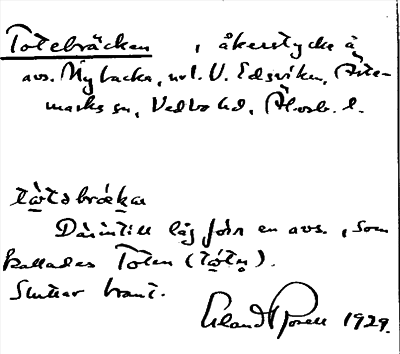 Totebräcken , åkerstycke å
avs. Nybacka, u. l. V. Edsviken, Ärte-
marks sn, Vedbo hd, Älvsb. l.
tὼtabrækan
Därintill låg förr en avs. , som
kallades Toten (tώtn̥).
Sluttar brant.
Erland Rosell 1929.